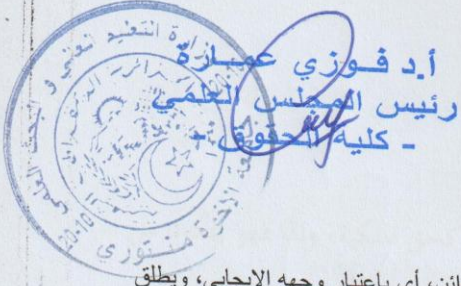 أ.د فوزي عمارة
رئيس المجلس العلمي
- كلية الحقوق -
وزارة التعليم العالي و البحث العلمي
الإخوة منتوري
ائن، أي باعتبار وجهه الإيجابي، ويطلق